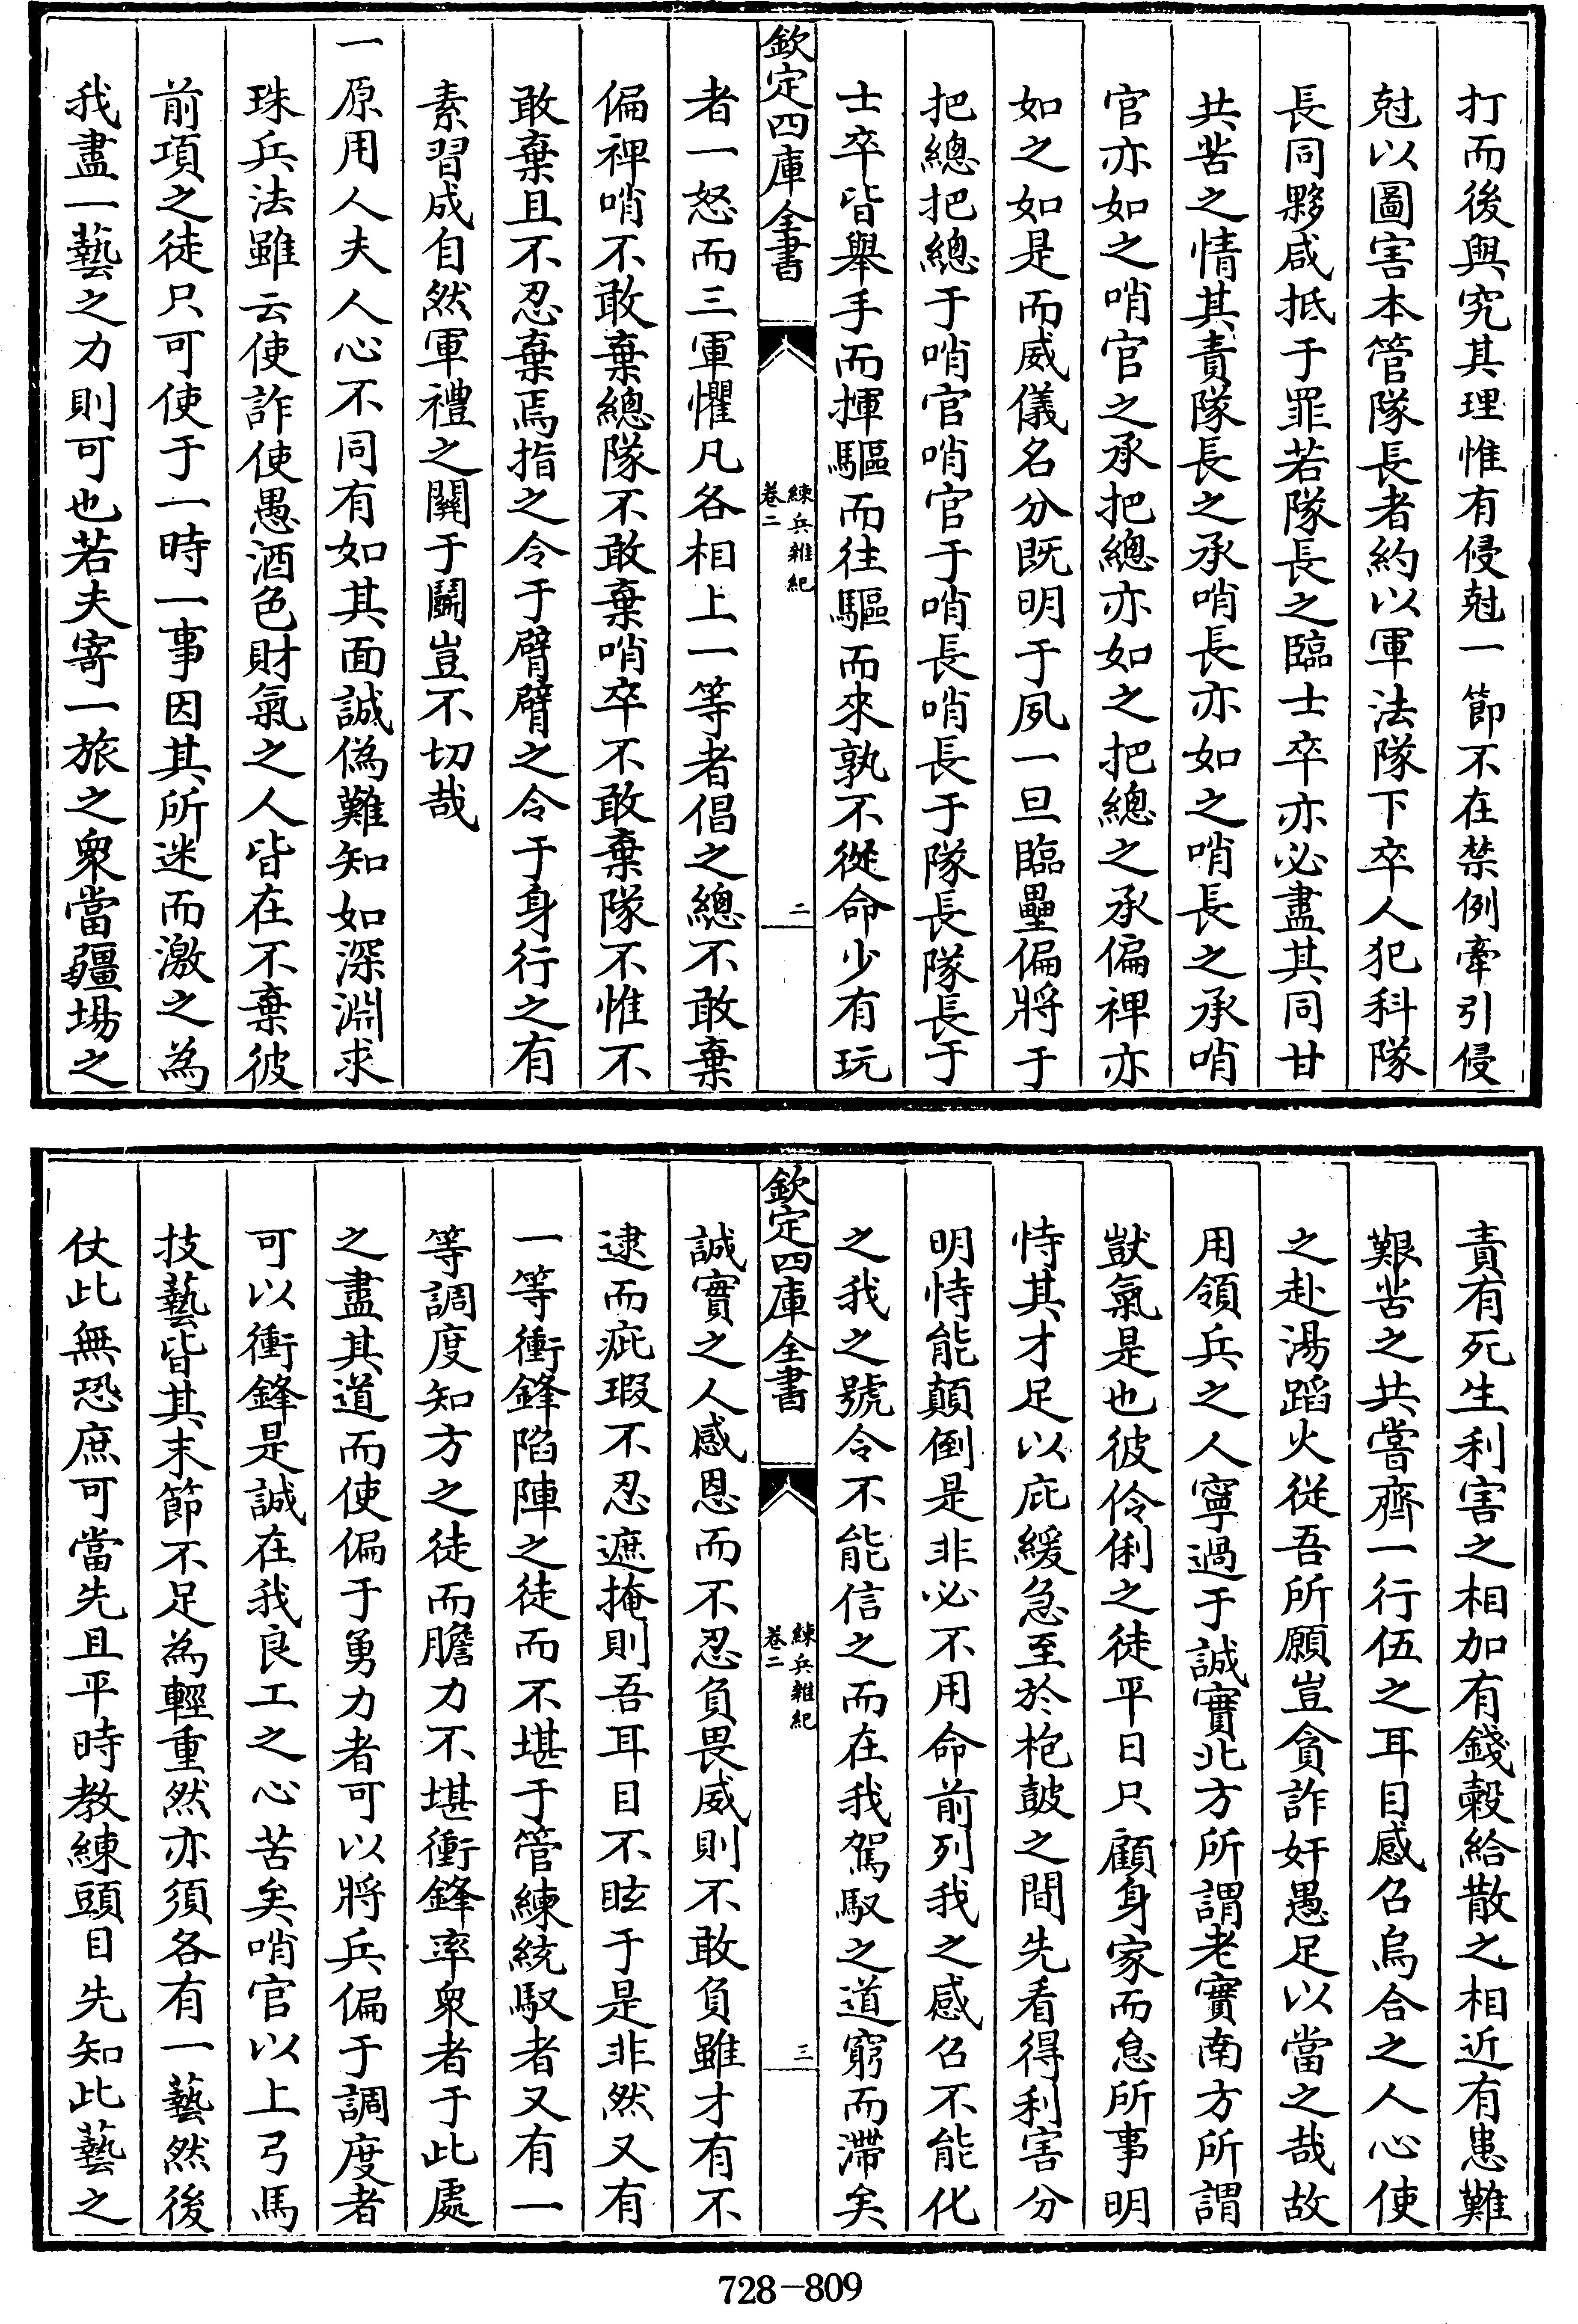 打而後與究其理惟有侵尅一節不在禁例牽引侵
尅以圖害本管隊長者約以軍法隊下卒人犯科隊
長同夥咸抵于罪若隊長之臨士卒亦必盡其同甘
共苦之情其責隊長之承哨長亦如之哨長之承哨
官亦如之哨官之承把總亦如之把總之承偏裨亦
如之如是而威儀名分既明于夙一旦臨壘偏將于
把總把總于哨官哨官于哨長哨長于隊長隊長于
士卒皆舉手而揮驅而往驅而來孰不從命少有玩
欽定四庫全書
練兵雜紀
卷二
二
者一怒而三軍懼凡各相上一等者倡之總不敢棄
偏裨哨不敢棄總隊不敢棄哨卒不敢棄隊不惟不
敢棄且不忍棄焉指之令于臂臂之令于身行之有
素習成自然軍禮之關于鬬豈不切哉
一原用人夫人心不同有如其面誠偽難知如深淵求
珠兵法雖云使詐使愚酒色財氣之人皆在不棄彼
前項之徒只可使于一時一事因其所迷而激之為
我盡一藝之力則可也若夫寄一旅之衆當疆場之
責有死生利害之相加有錢穀給散之相近有患難
艱苦之共嘗齊一行伍之耳目感召烏合之人心使
之赴湯蹈火從吾所願豈貪詐奸愚足以當之哉故
用領兵之人寧過于誠實北方所謂老實南方所謂
獃氣是也彼伶俐之徒平日只顧身家而怠所事明
恃其才足以庇緩急至於枹鼓之間先看得利害分
明恃能顛倒是非必不用命前列我之感召不能化
之我之號令不能信之而在我駕馭之道窮而滯矣
欽定四庫全書
練兵雜紀
卷二
三
誠實之人感恩而不忍負畏威則不敢負雖才有不
逮而疵瑕不忍遮掩則吾耳目不眩于是非然又有
一等衝鋒陷陣之徒而不堪于管練統馭者又有一
等調度知方之徒而膽力不堪衝鋒率衆者于此處
之盡其道而使偏于勇力者可以將兵偏于調度者
可以衝鋒是誠在我良工之心苦矣哨官以上弓馬
技藝皆其末節不足為輕重然亦須各有一藝然後
仗此無恐庶可當先且平時教練頭目先知此藝之
728-809